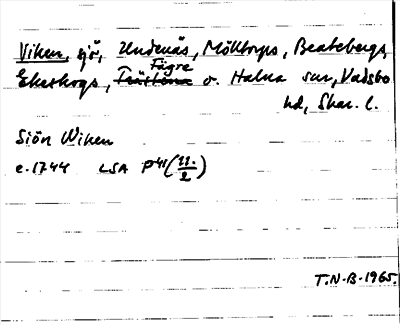 Viken, sjö, Undenäs, Mölltorps, Beatebergs,
Ekeskogs, Fägre o. Halna snr, Vadsbo
hd, Skar. l.
Siön Wiken
c. 1744 LSA P41 (11./2)
T.N-B-1965.